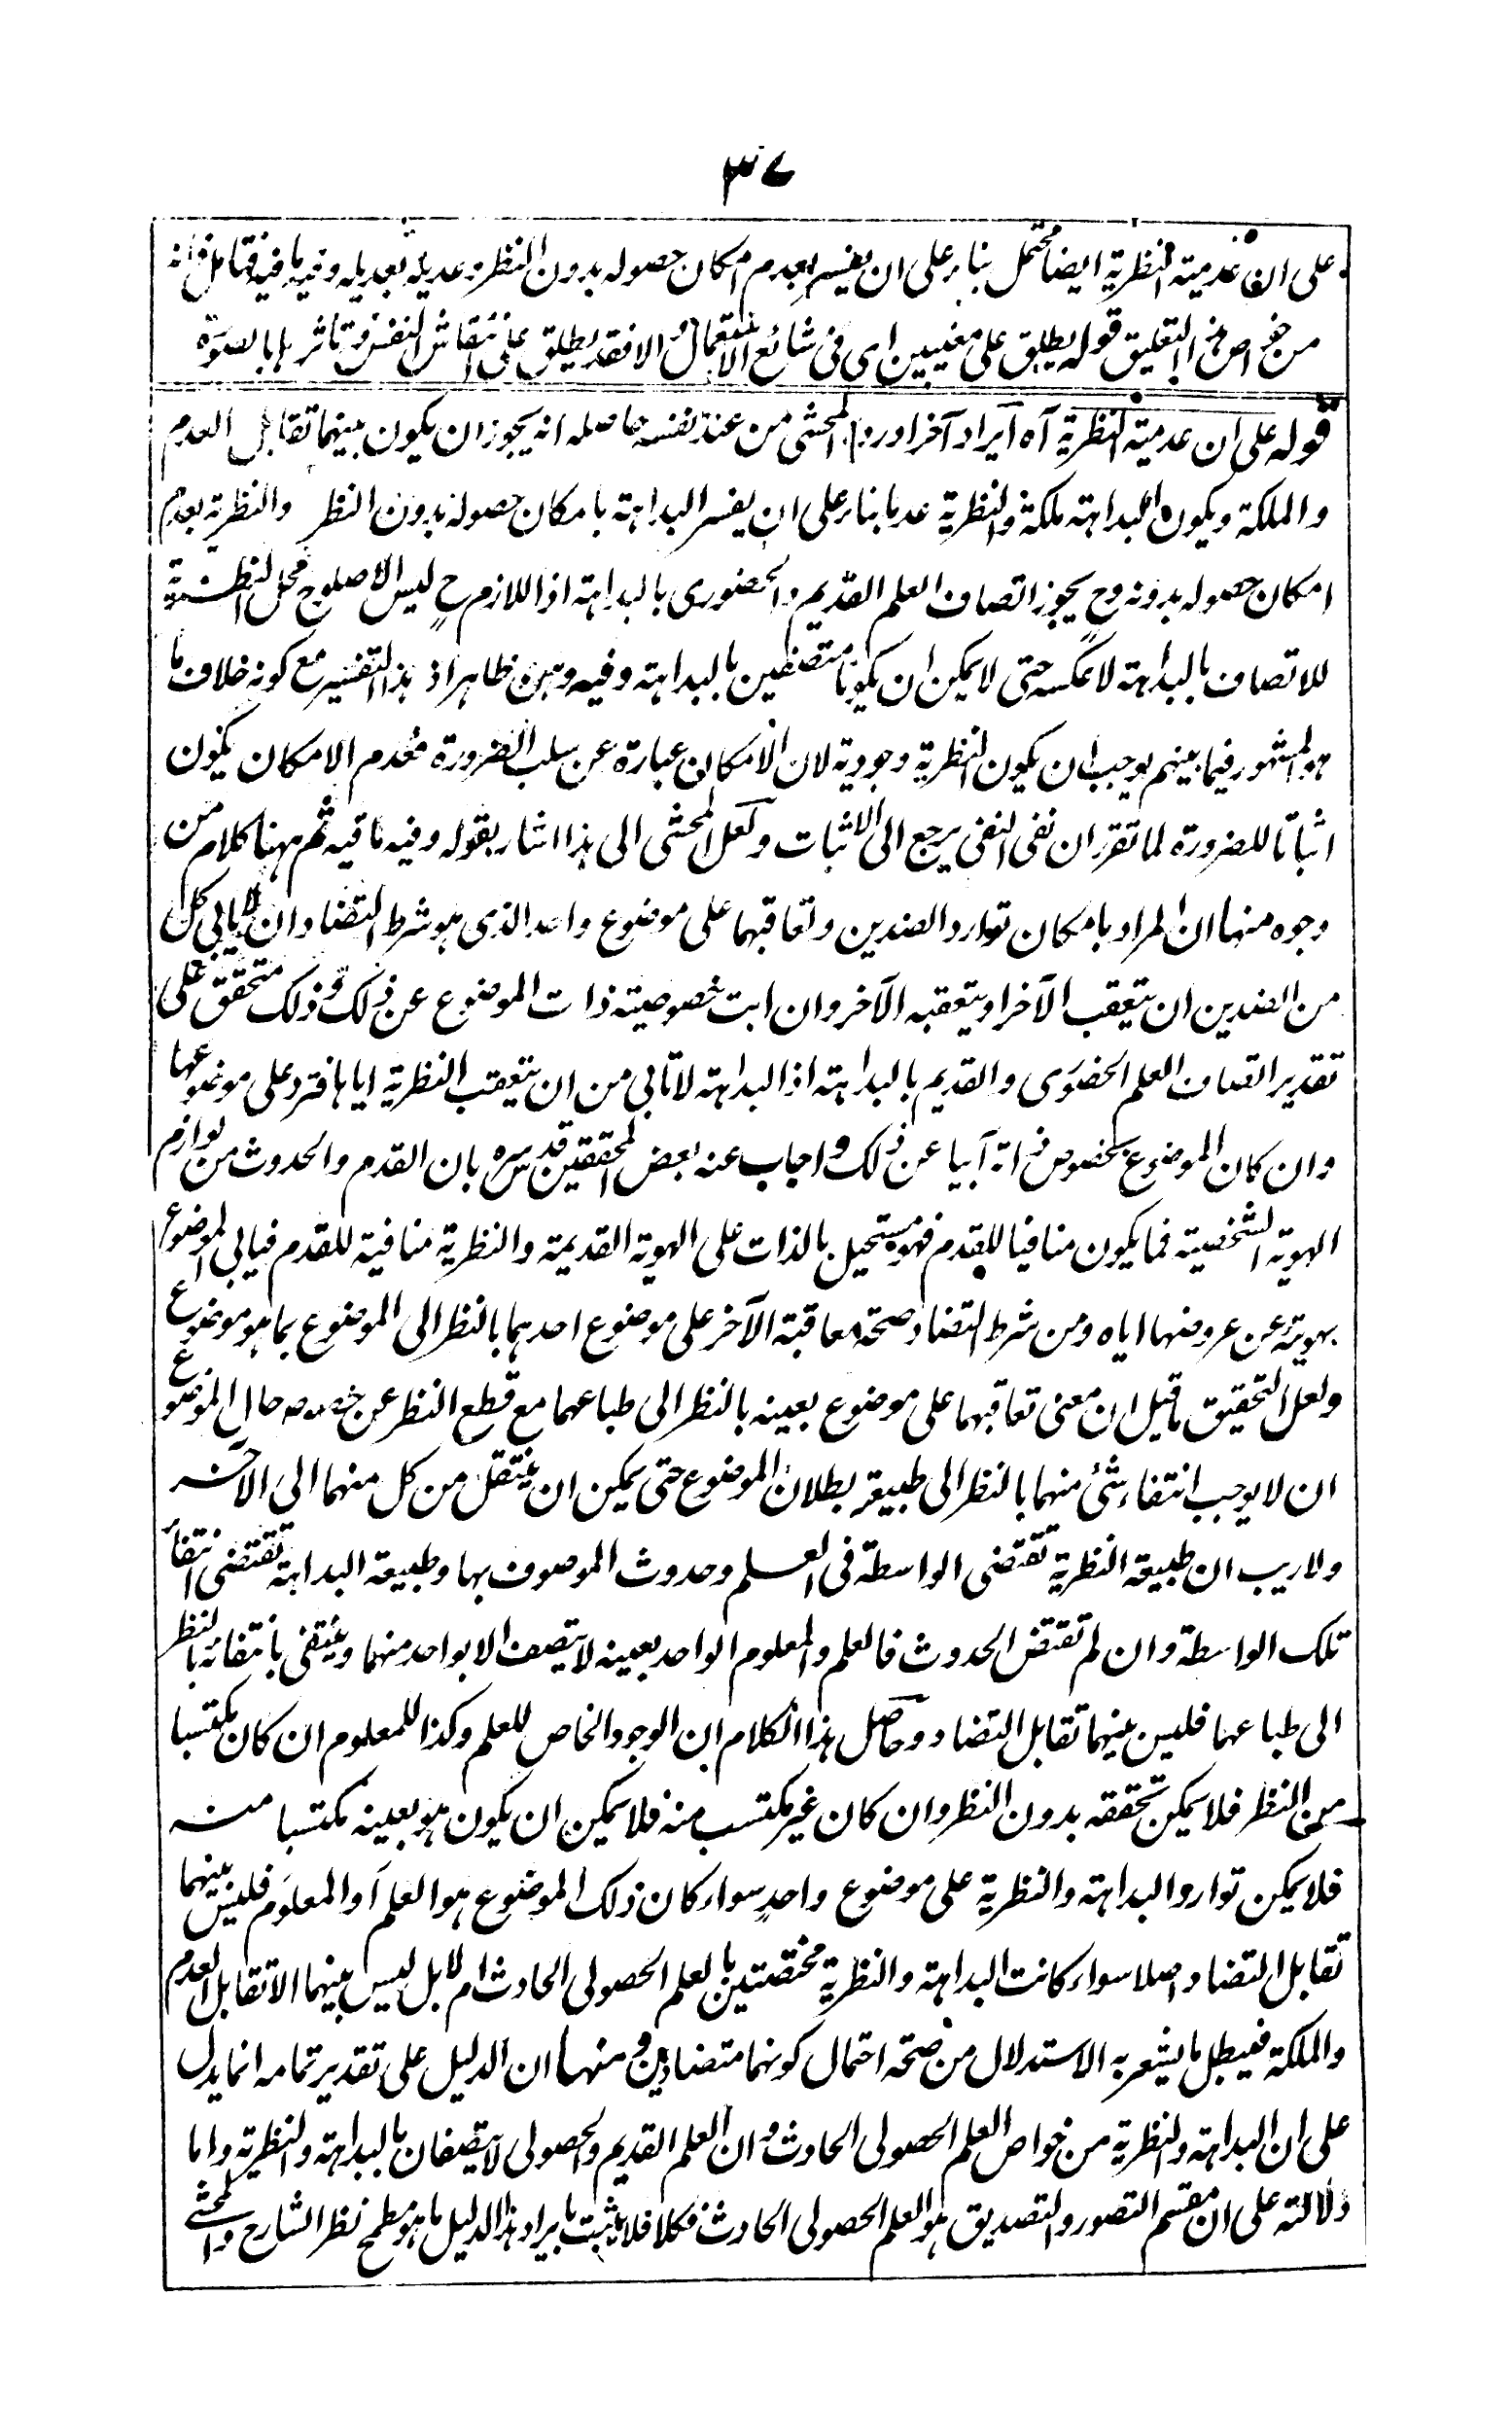 ٣٧
على ان عدمية النظرية ايضا محتمل بناء على ان يفسر بعدم امكان حصوله بدون النظر وعديله بعديله وفيه ما فيه فتامل فانه
من خواص هذا التعليق قوله يطلق على معنيين اى فى شائع الاستعمال والا فقد يطلق على انتقاش النفس وتاثرها بالصورة
قوله على ان عدمية النظرية آه ايراد آخر اورده المحشى من عند نفسه حاصله انه يجوز ان يكون بينهما تقابل العدم
والملكة ويكون البداهة ملكة والنظرية عدما بناء على ان يفسر البداهة بامكان حصوله بدون النظر والنظرية بعدم
امكان حصوله بدونه وح يجوز اتصاف العلم القديم والحضورى بالبداهة اذ اللازم ح ليس الا صلوح محل النظرية
للاتصاف بالبداهة لا عكسه حتى لا يمكن ان يكونا متصفين بالبداهة وفيه وهن ظاهر اذ هذا التفسير مع كونه خلاف ما
هو المشهور فيما بينهم يوجب ان يكون النظرية وجودية لان الامكان عبارة عن سلب الضرورة فعدم الامكان يكون
اثباتا للضرورة لما تقرر ان نفى النفى يرجع الى الاثبات ولعل المحشى الى هذا اشار بقوله وفيه ما فيه ثم ههنا كلام من
وجوه منها ان المراد بامكان توارد الضدين وتعاقبهما على موضوع واحد الذى هو شرط التضاد ان لا يابى كل
من الضدين ان يتعقب الآخر او يتعقبه الآخر وان ابت خصوصية ذات الموضوع عن ذلك وذلك متحقق على
تقدير اتصاف العلم الحضورى والقديم بالبداهة اذ البداهة لا تابى من ان يتعقب النظرية اياها فترد على موضوعها
وان كان الموضوع بخصوص ذاته آبيا عن ذلك واجاب عنه بعض المحققين قدس سره بان القدم والحدوث من لوازم
الهوية الشخصية فما يكون منافيا للقدم فهو مستحيل بالذات على الهوية القديمة والنظرية منافية للقدم فيابى الموضوع
بهويته عن عروضها اياه ومن شرط التضاد صحة معاقبة الآخر على موضوع احدهما بالنظر الى الموضوع بما هو موضوع
ولعل التحقيق ما قيل ان معنى تعاقبهما على موضوع بعينه بالنظر الى طباعهما مع قطع النظر عن خصوصه حال الموضوع
ان لا يوجب انتفاء شئ منهما بالنظر الى طبيعته بطلان الموضوع حتى يمكن ان ينتقل من كل منهما الى الآخر
ولا ريب ان طبيعة النظرية تقتضى الواسطة فى العلم وحدوث الموصوف بها وطبيعة البداهة تقتضى انتفاء
تلك الواسطة وان لم تقتض الحدوث فالعلم والمعلوم الواحد بعينه لا يتصف الا بواحد منهما وينتفى بانتفائه بالنظر
الى طباعهما فليس بينهما تقابل التضاد وحاصل هذا الكلام ان الوجود الخاص للعلم وكذا للمعلوم ان كان مكتسبا
من النظر فلا يمكن تحققه بدون النظر وان كان غير مكتسب منه فلا يمكن ان يكون هو بعينه مكتسبا منه
فلا يمكن توارد البداهة والنظرية على موضوع واحد سواء كان ذلك الموضوع هو العلم او المعلوم فليس بينهما
تقابل التضاد اصلا سواء كانت البداهة والنظرية مختصتين بالعلم الحصولى الحادث ام لا بل ليس بينهما الا تقابل العدم
والملكة فيبطل ما يشعر به الاستدلال من صحة احتمال كونهما متضادين ومنها ان الدليل على تقدير تمامه انما يدل
على ان البداهة والنظرية من خواص العلم الحصولى الحادث وان العلم القديم والحصولى لا يتصفان بالبداهة والنظرية واما
دلالته على ان مقسم التصور والتصديق هو العلم الحصولى الحادث فكلا فلا يثبت بايراد هذا الدليل ما هو مطمح نظر الشارح والمحشى